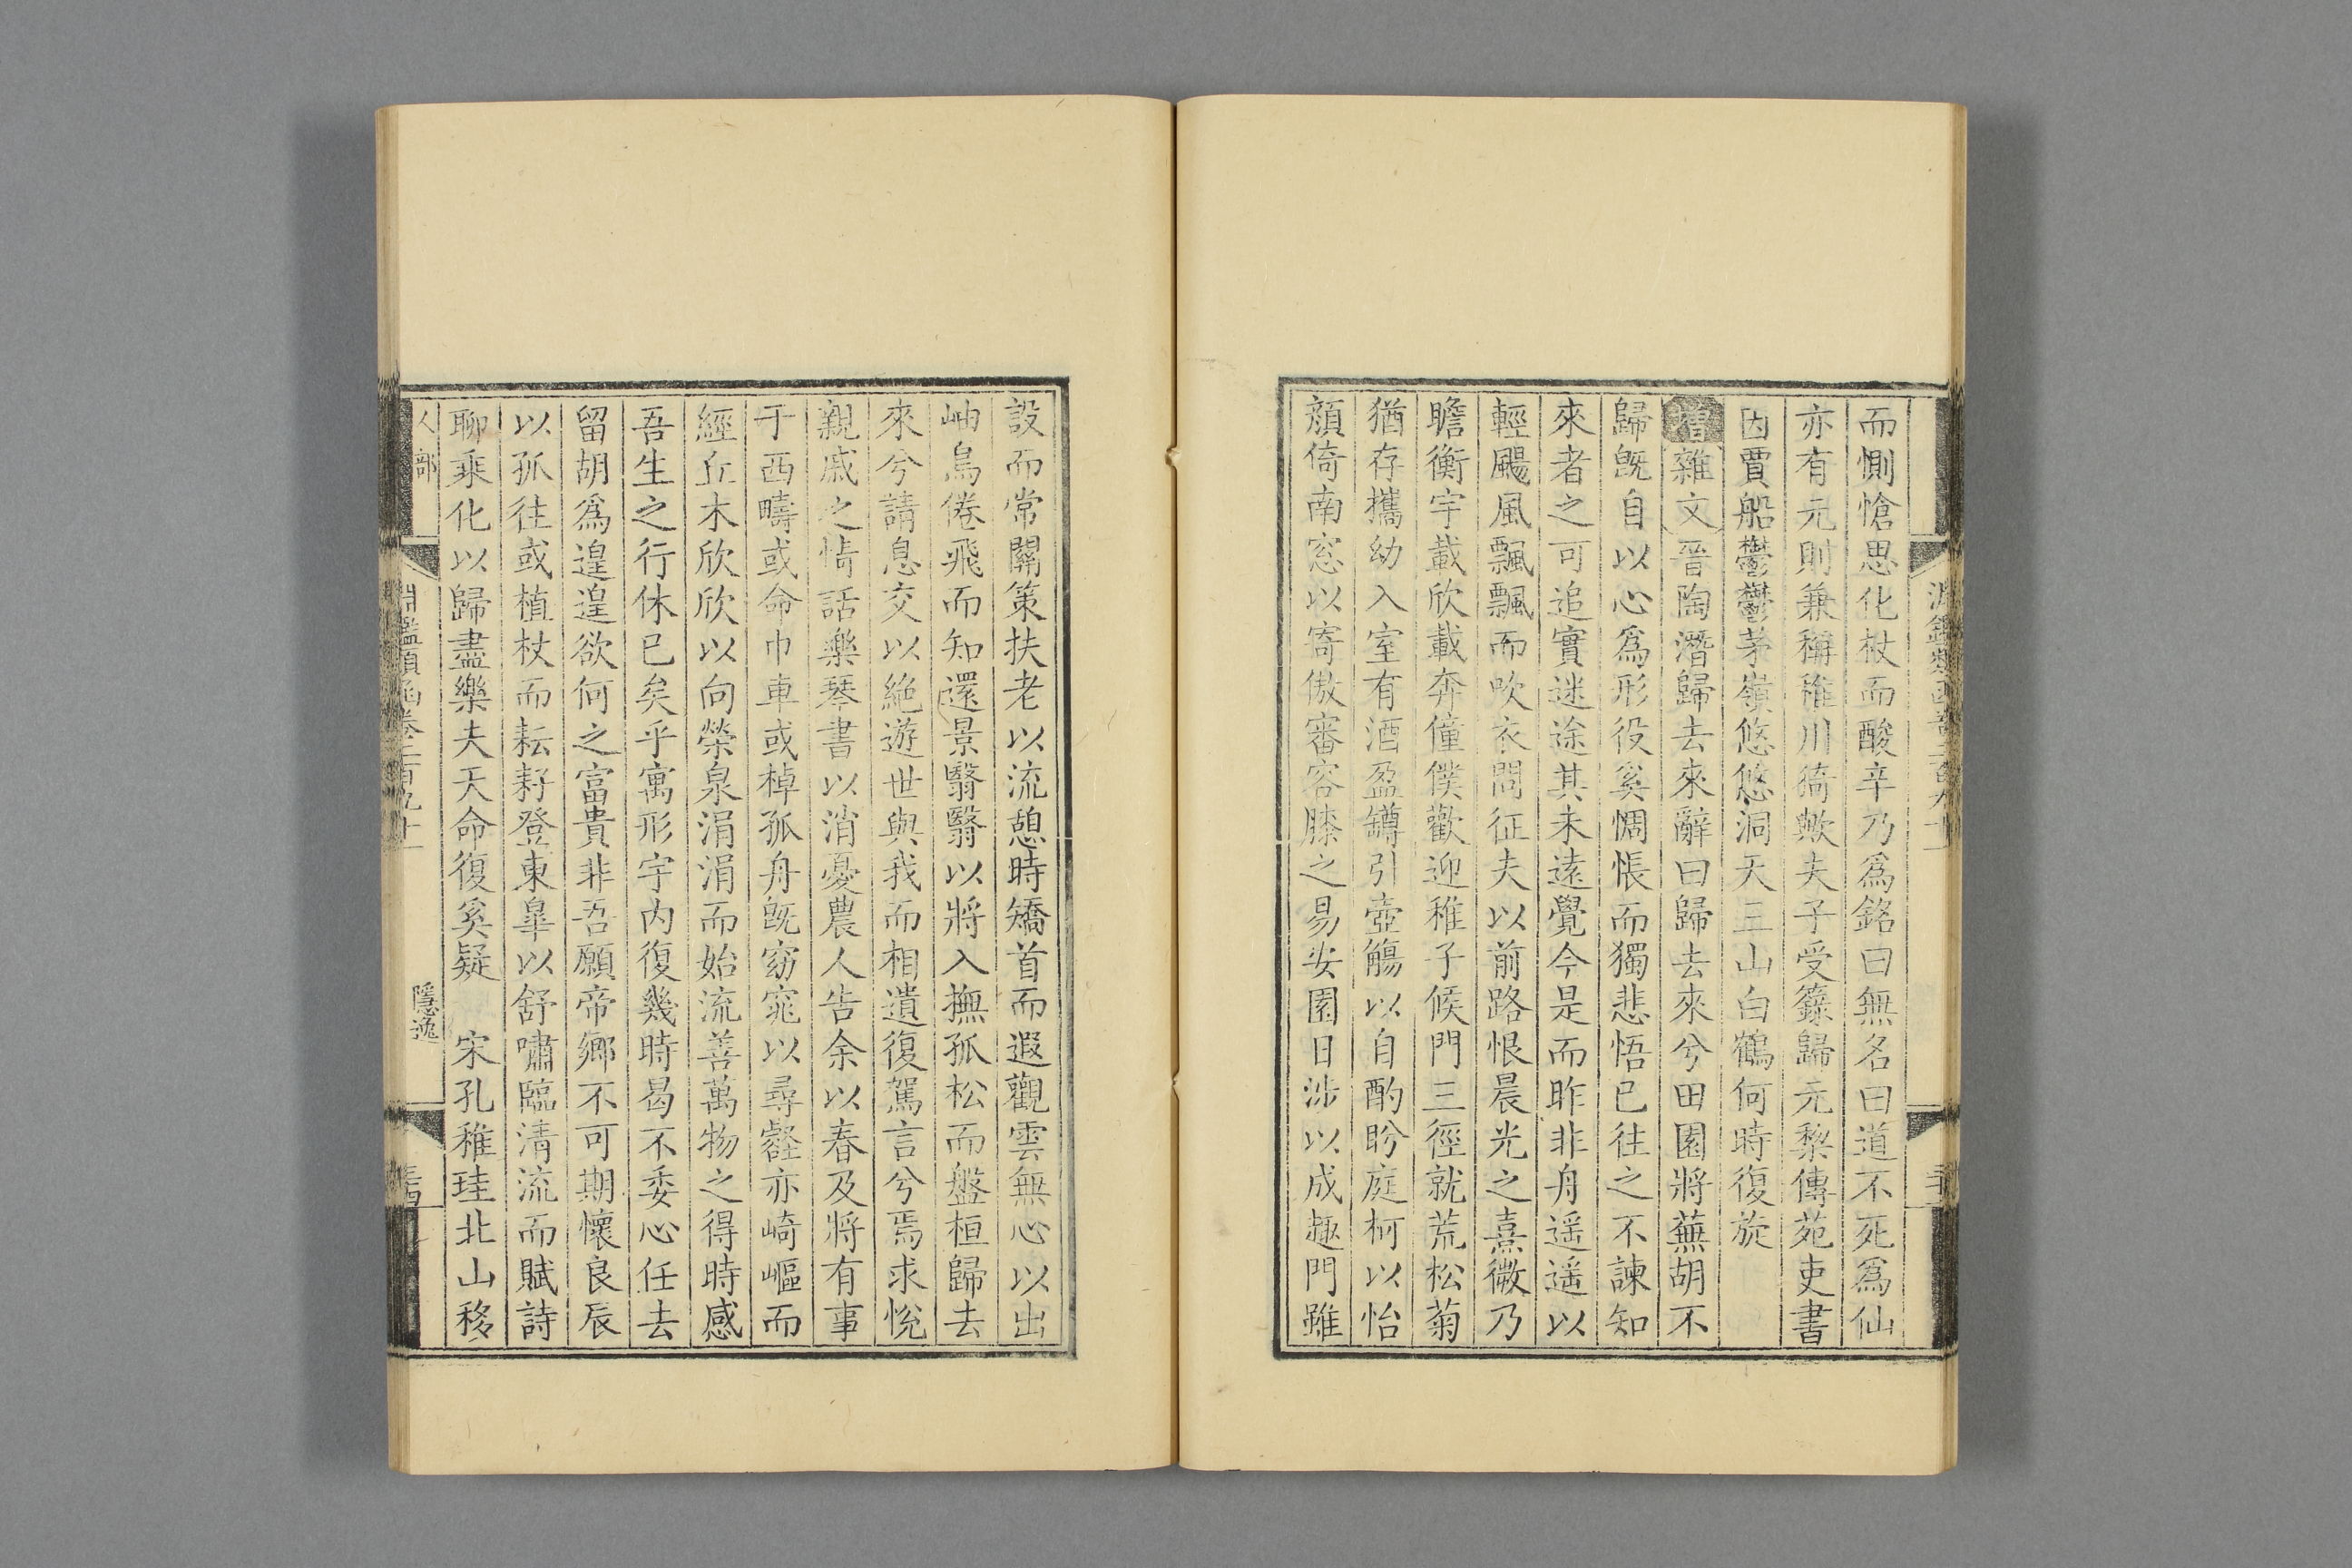 而惻愴思化杖而酸辛乃爲銘曰無名曰道不死爲仙
亦有元則兼稱稚川猗歟夫子受籙歸元黎傳苑吏書
因賈船鬱鬱茅嶺悠悠洞天三山白鶴何時復旋
增雜文晉陶潛歸去來辭曰歸去來兮田園將蕪胡不
歸旣自以心爲形役奚惆悵而獨悲悟已往之不諫知
來者之可追實迷途其未遠覺今是而昨非舟遥遥以
輕颺風飄飄而吹衣問征夫以前路恨晨光之熹微乃
瞻衡宇載欣載奔僮僕歡迎稚子候門三徑就荒松菊
猶存攜幼入室有酒盈罇引壺觴以自酌眄庭柯以怡
顏倚南窓以寄傲審容膝之易安園日涉以成趣門雖
設而常關策扶老以流憩時矯首而遐觀雲無心以出
岫鳥倦飛而知還景翳翳以將入撫孤松而盤桓歸去
來兮請息交以絶遊世與我而相遺復駕言兮焉求悅
親戚之情話樂琴書以消憂農人告余以春及將有事
于西疇或命巾車或棹孤舟旣窈窕以尋壑亦崎嶇而
經丘木欣欣以向榮泉涓涓而始流善萬物之得時感
吾生之行休已矣乎寓形宇内復幾時曷不委心任去
留胡爲遑遑欲何之富貴非吾願帝鄉不可期懷良辰
以孤往或植杖而耘耔登東皐以舒嘯臨清流而賦詩
聊乘化以歸盡樂夫天命復奚疑　宋孔稚珪北山移
人部　淵鑑類函卷二百九十一　隱逸